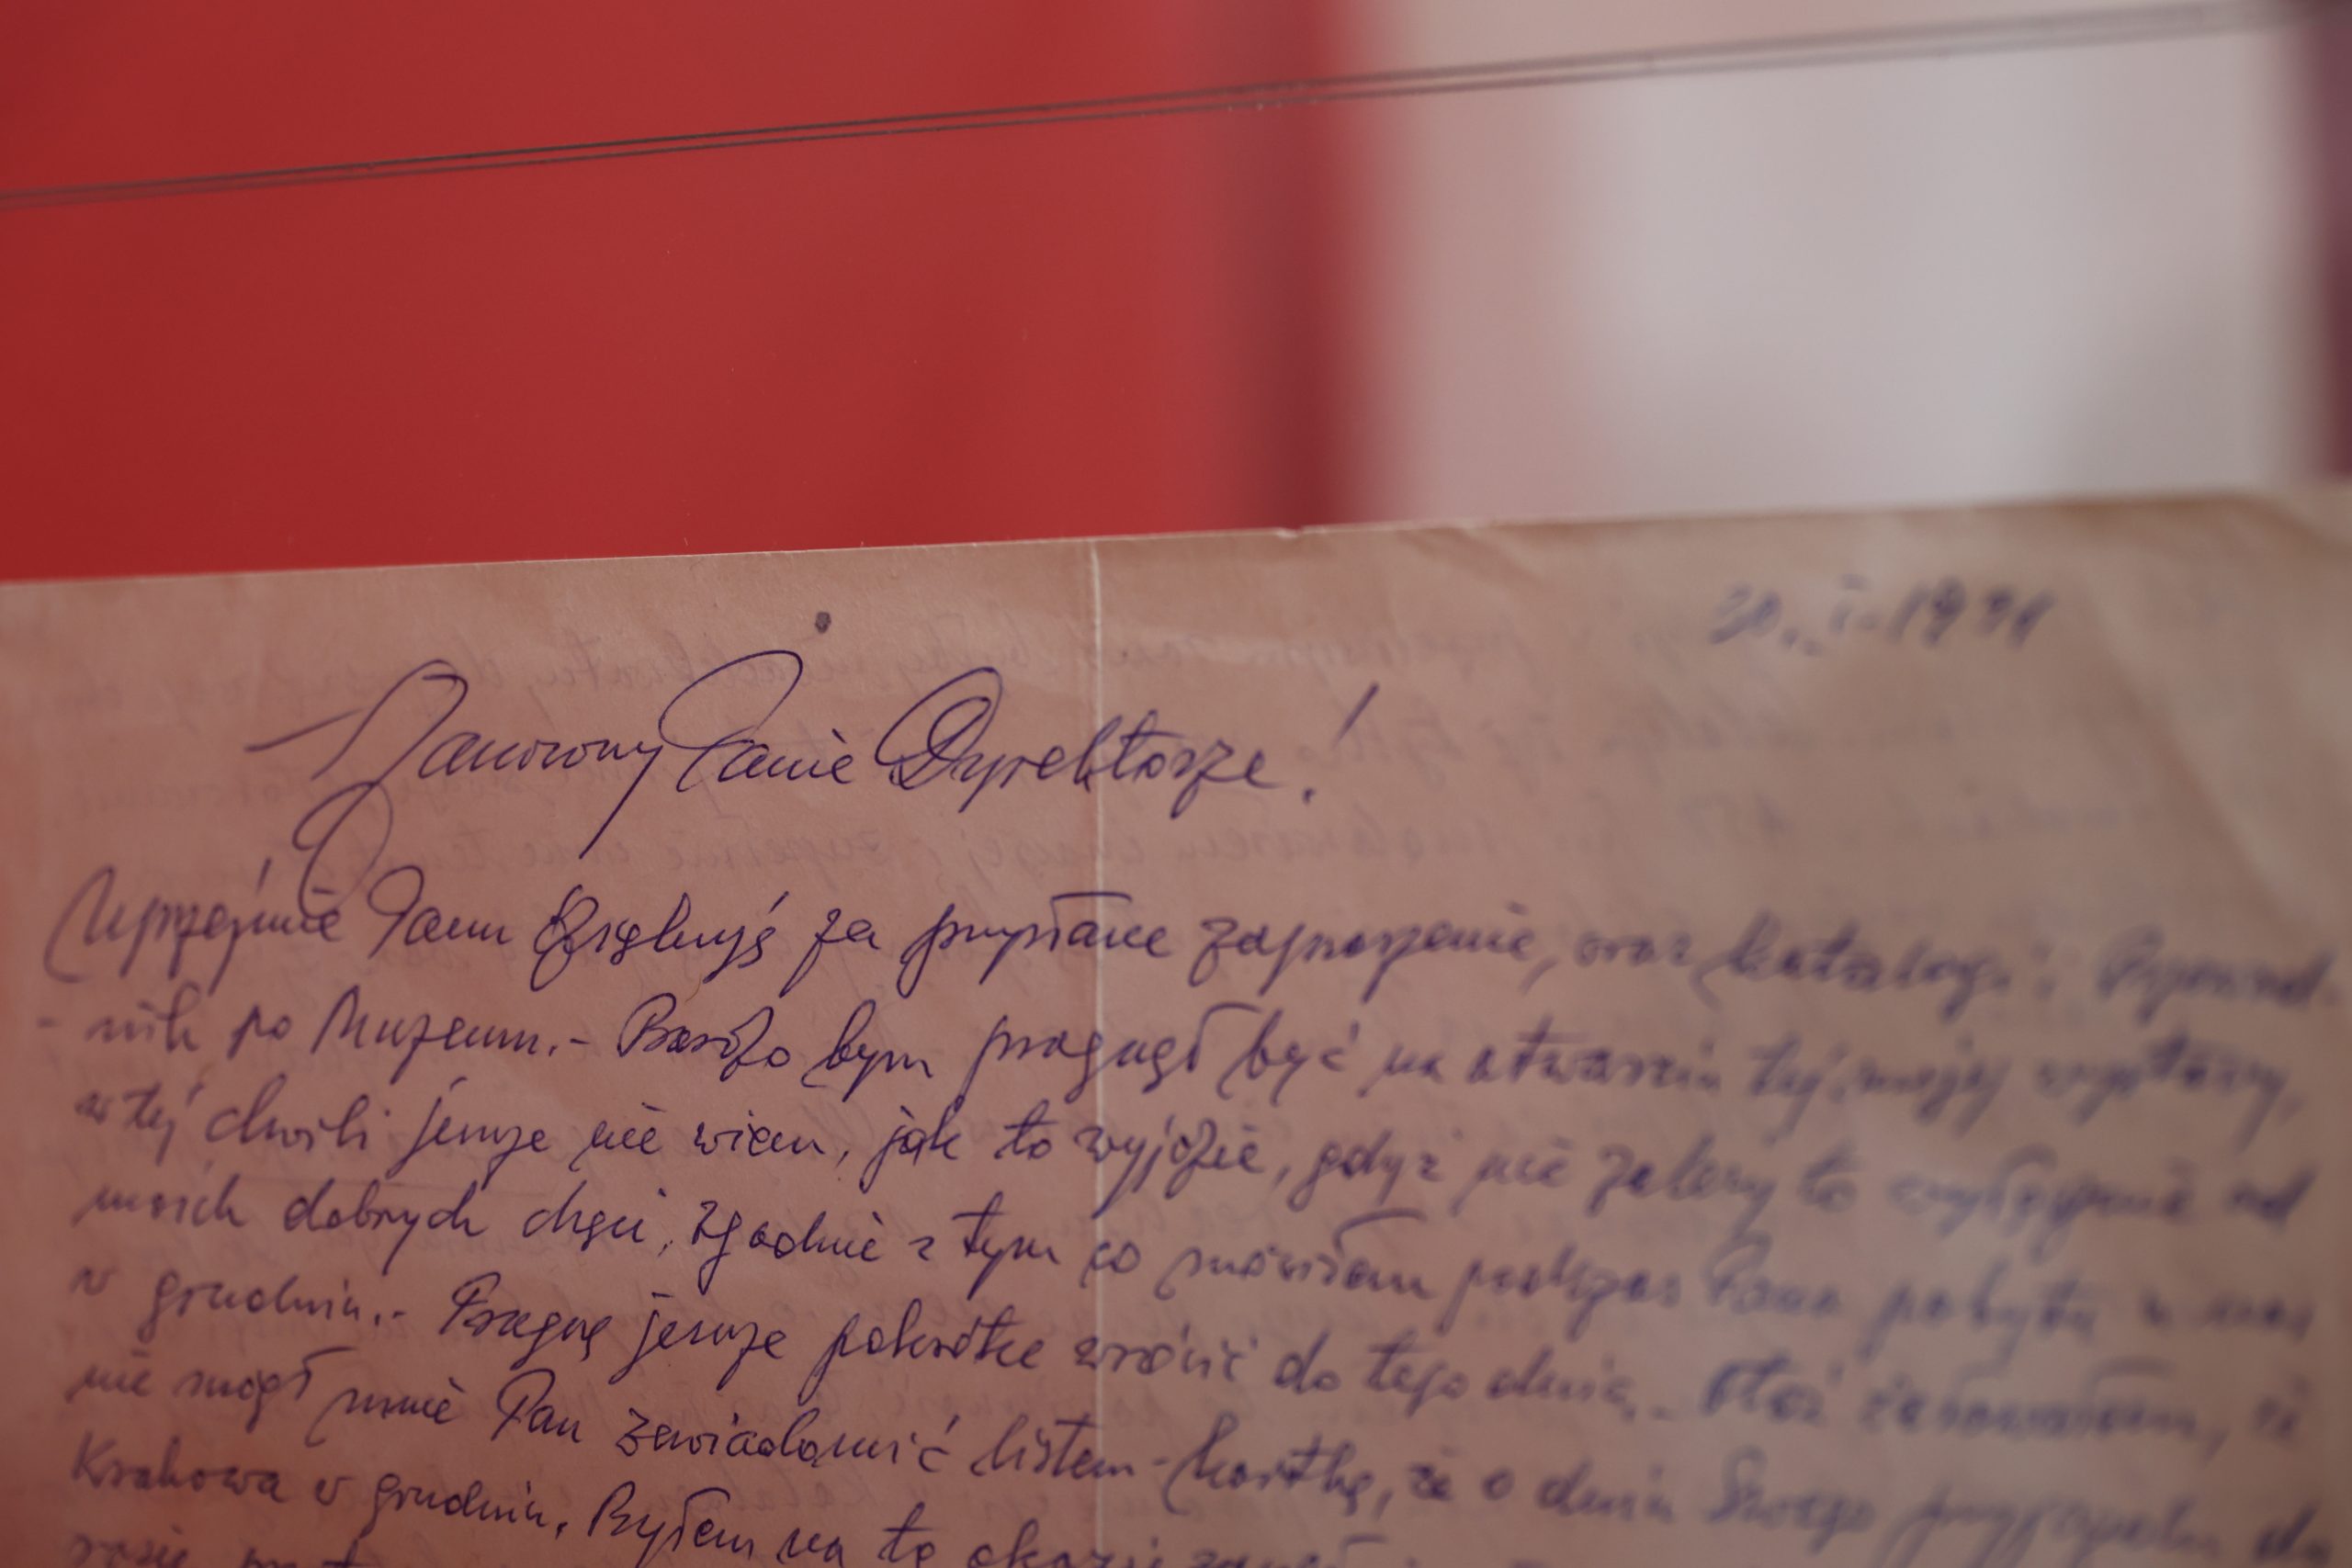 30. I. 1971
Szanowny Panie Dyrektorze!
Uprzejmie Panu dziękuję za przysłane zaproszenie, oraz katalogi i Przewod-
- nik po Muzeum.- Bardzo bym pragnął być na otwarciu tej mojej wystawy,
w tej chwili jeszcze nie wiem, jak to wyjdzie, gdyż nie zależy to wyłącznie od
moich dobrych chęci, zgodnie z tym co mówiłem podczas Pana pobytu u nas
w grudniu.- Pragnę jeszcze pokrótce wrócić do tego dnia.- Otóż żałowałem, że
nie mógł mnie Pan zawiadomić listem - kartką, że o dniu Swego przyjazdu do
Krakowa w grudniu. Byłem na tę okazję